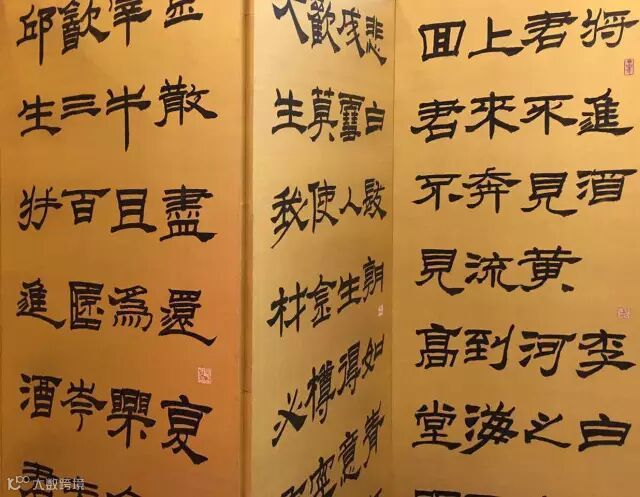 将進酒 李白
君不見黃河之
上來奔流到海
回君不見高堂
悲白髮朝如青
成雪人生得意
歡莫使金樽空
天生我材必
金散盡還复
宰牛且為樂
三百岑
邱生将進酒君
大数跨境